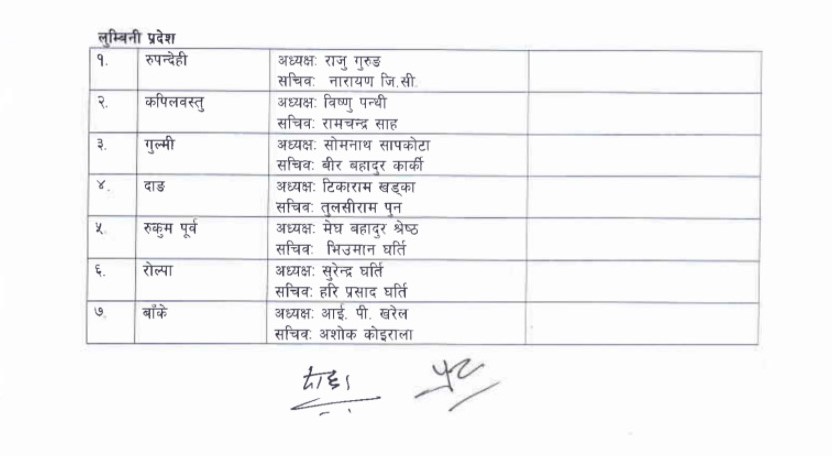 लुम्बिनी प्रदेश
१. रुपन्देही अध्यक्ष: राजु गुरुङ
सचिव: नारायण जि.सी.
२. कपिलवस्तु अध्यक्ष: विष्णु पन्थी
सचिव: रामचन्द्र साह
३. गुल्मी अध्यक्ष: सोमनाथ सापकोटा
सचिव: बीर बहादुर कार्की
४. दाङ अध्यक्ष: टिकाराम खड्का
सचिव: तुलसीराम पुन
५. रुकुम पूर्व अध्यक्ष: मेघ बहादुर श्रेष्ठ
सचिव: भिउमान घर्ति
६. रोल्पा अध्यक्ष: सुरेन्द्र घर्ति
सचिव: हरि प्रसाद घर्ति
७. बाँके अध्यक्ष: आई. पी. खरेल
सचिव: अशोक कोइराला